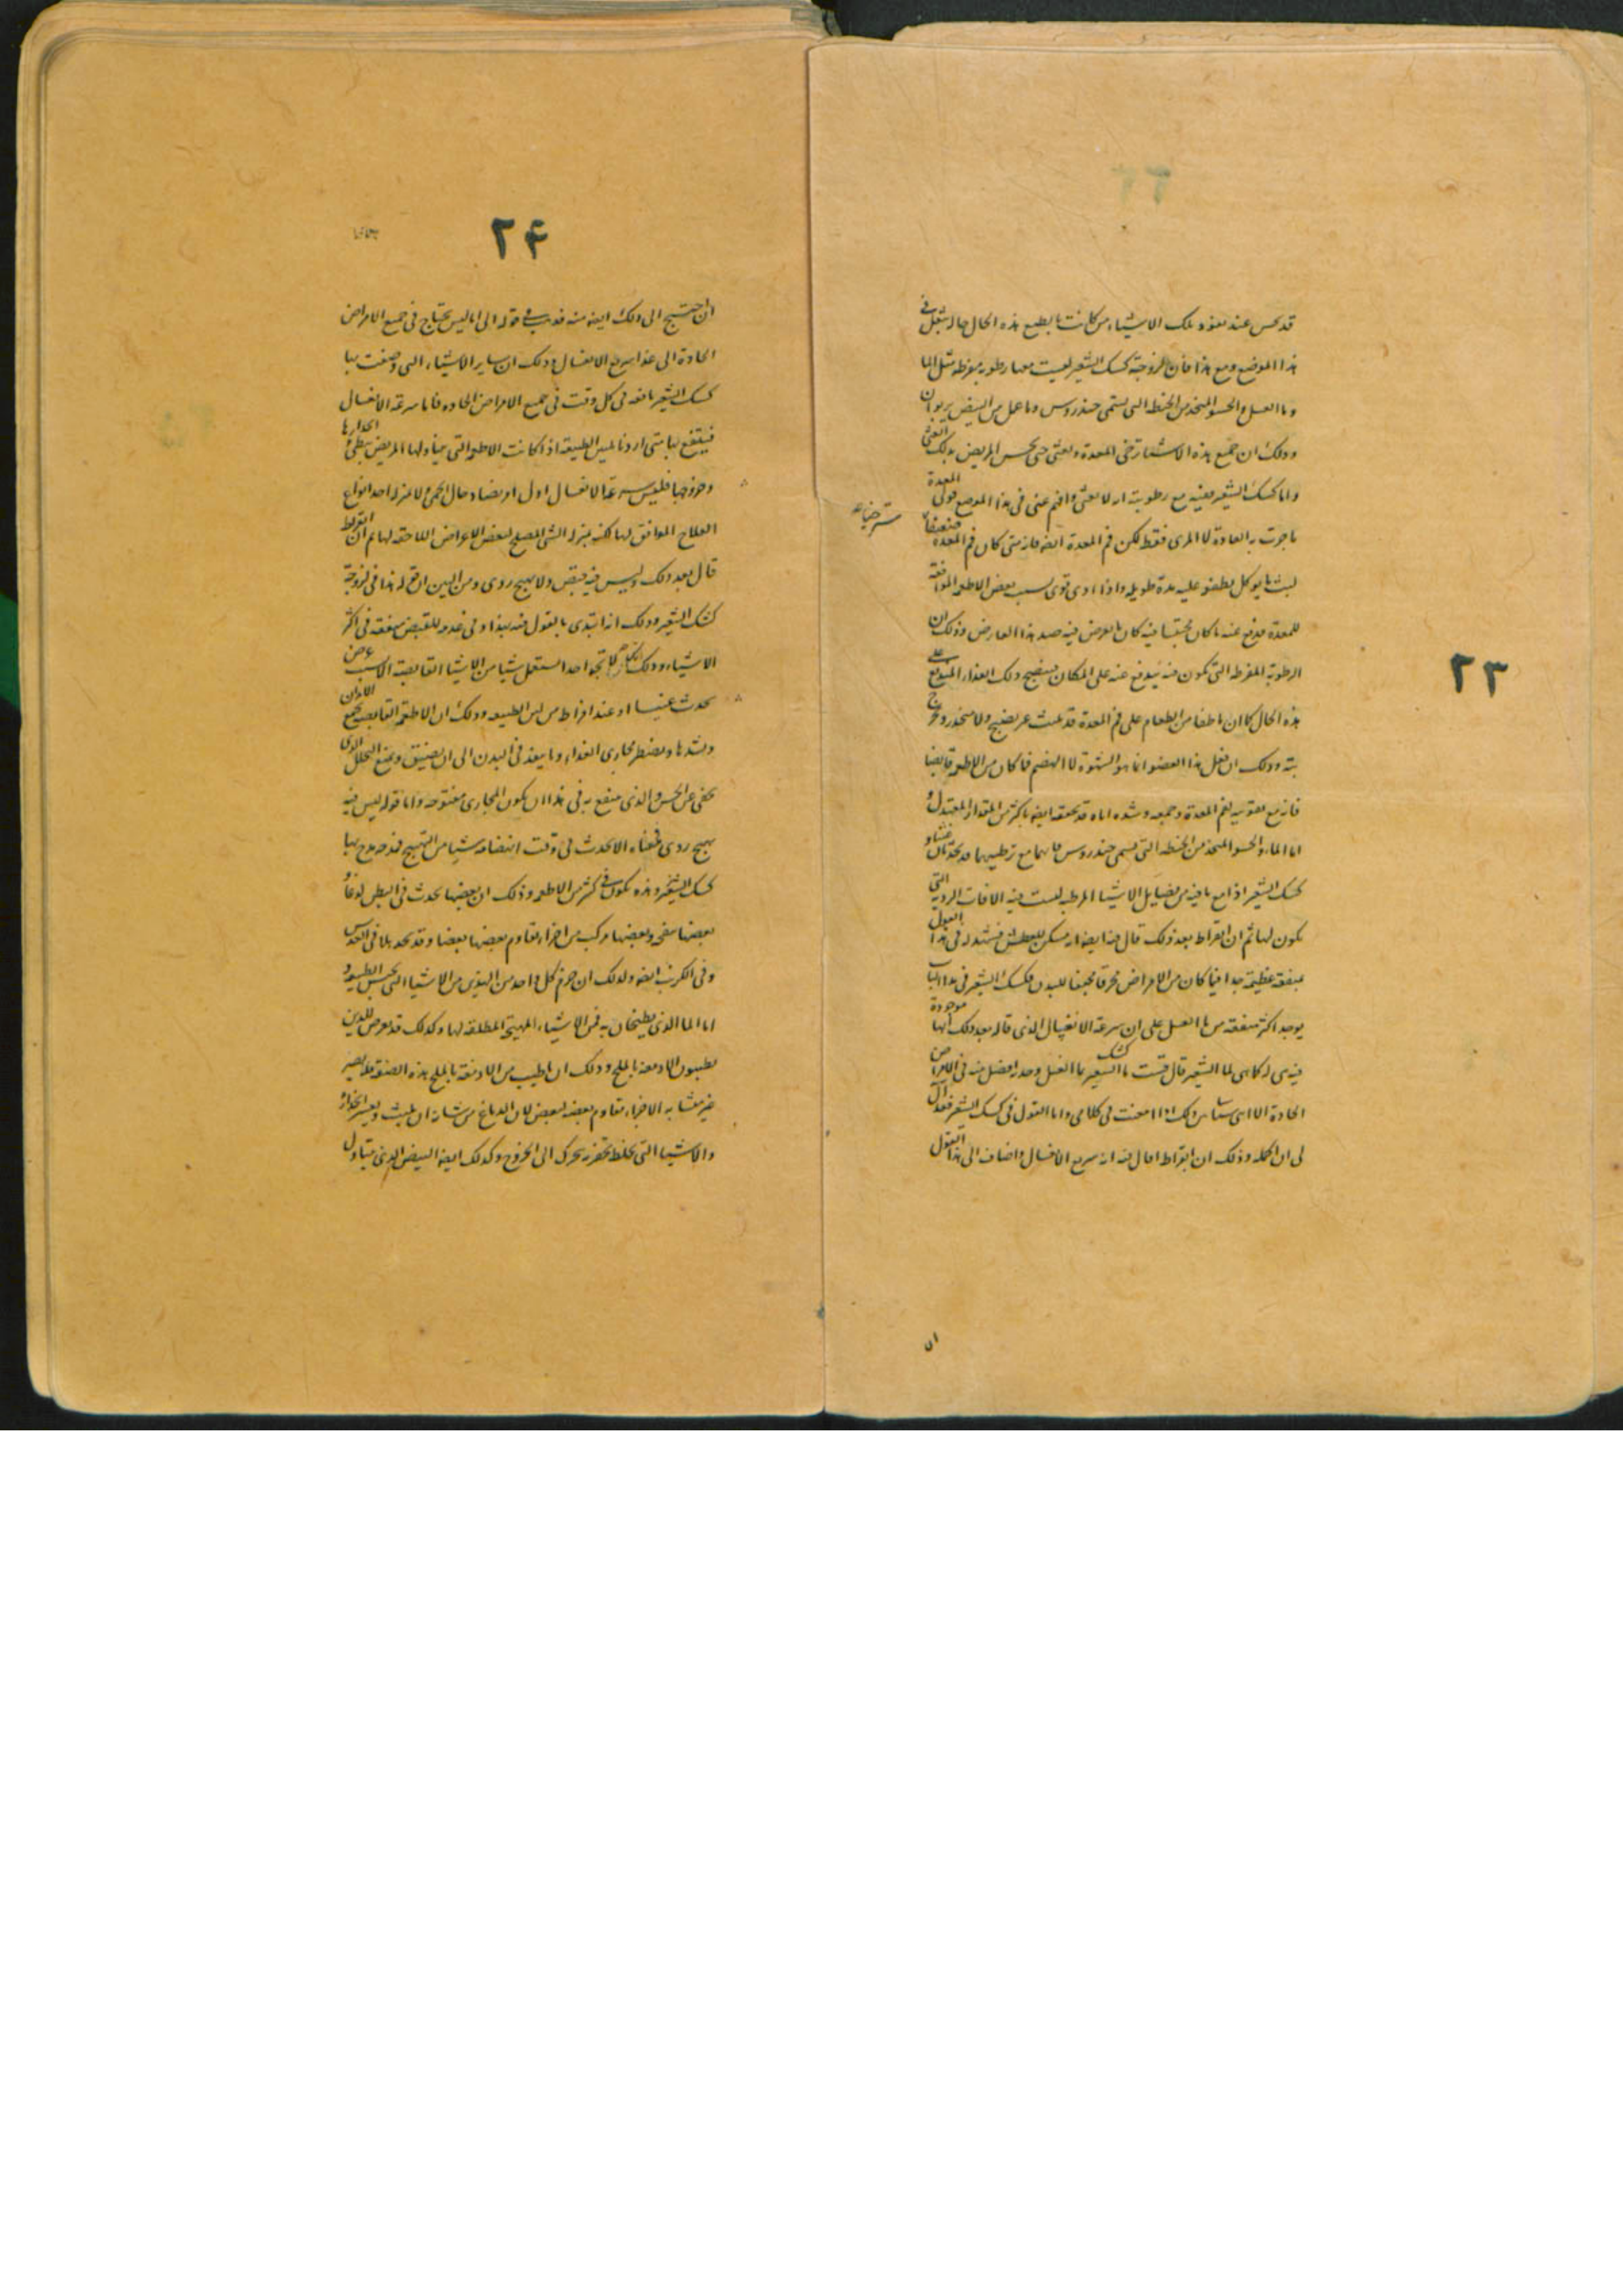 ٢٣
قد يحس عند نفوذ تلك الاشياء من كانت بالطبع هذه الحال حاله ثقل في
هذا الموضع ومع هذا فان لزوجة كشك الشعير ليست معها رطوبة مفرطة مثل الما
وما العسل والحسو المتخذ من الحنطة التى تسمى خندروس وما عمل من البيض يربو ان
وذلك ان جميع هذه الاشيا ترخى المعدة وتغثى حتى يحس المريض بذلك الغثى
واما كشك الشعير ففيه مع رطوبته انه لا يغثى وافهم عنى فى هذا الموضع قولى المعدة
ما جرت به العادة لا المرى فقط لكن فم المعدة ايضه فانه متى كان فم المعدة ضعيفا
لبث ما يوكل يطفو عليه مدة طويلة واذا اوى قوى بسبب بعض الاطعمة الموافقة
للمعدة فدفع عنه ما كان محتبسا فيه كان ما يعرض فيه ضد هذا العارض وذلك ان
الرطوبة المفرطة التى تكون فيه يندفع عنه على المكان فينضج ذلك الغذاء المندفع على
هذه الحال كما ان ما طفا من الطعام على فم المعدة قد يلبث غير نضيج ولا منحدر وخرج
بته وذلك ان فعل هذا العضو انما هو الشهوة لا الهضم فما كان من الاطعمة قابضا
فانه مع تقويته لفم المعدة وجمعه وشده اياه قد يجففه ايضه باكثر من المقدار المعتدل و
اما الماء والحسو المتخذ من الحنطة التى تسمى خندروس فانهما مع ترطيبهما قد يحدثان غثيا و
كشك الشعير اذا مع ما فيه من فضايل الاشيا المرطبة ليست فيه الافات الردية التى
تكون لها ثم ان ابقراط بعد ذلك قال فيه ايضه انه مسكن للعطش فشهد له فى هذا القول
بمنفعة عظيمة جدا فيما كان من الامراض محرقا مجففا للبدن فكشك الشعير فى هذا الباب
يوجد اكثر منفعة من ما العسل على ان سرعة الانغسال الذى قاله بعد ذلك انها موجودة
فيه هى له كما هى لما الشعير قال قست ما كشك الشعير بما العسل وجدته افضل منه فى الامراض
الحادة الا انى ساس ذلك اذا امعنت فى كلامى واما القول فى كشك الشعير فقد آل
لى ان اكمله وذلك ان ابقراط لما قال فيه انه سريع الانغسال واضاف الى هذا القول
ان
٢۴
ان احتيج الى ذلك ايضه منه فدب فى قوله الى انا ليس نحتاج فى جميع الامراض
الحادة الى غذا سريع الانغسال وذلك ان ساير الاشياء التى وصفت بها
كشك الشعير نافعة فى كل وقت فى جميع الامراض الحادة فاما سرعة الانغسال
فينتفع بها متى اردنا تليين الطبيعة اذا كانت الاطعمة التى يتناولها المريض يبطى انحدارها
وخروجها فليس سرعة الانغسال اول امر يضاد حال الحمى ولا بمنزلة احد انواع
العلاج الموافق لها لكنه بمنزلة الشى المصلح لبعض الاعراض اللاحقة لها ثم ان ابقراط
قال بعد ذلك وليس فيه قبض ولا تهييج ردى ومن البين انه قرنه له هذا فى لزوجة
كشك الشعير وذلك انه ابتدى بالقول فيه بهذا وفى عدمه للقبض منفعة فى اكثر
الاشياء وذلك انك لا تجد احدا استعمل شيا من الاشيا القابضة الا بسبب عرض
يحدث عنها او عند افراط من لين الطبيعة وذلك ان الاطعمة القابضة تجمع الابدان
وتشدها وتضطر مجارى الغذاء وما ينفذ فى البدن الى ان يضيق ويمنع التحلل الذى
يخفى عن الحس والذى ينتفع به فى هذا ان تكون المجارى مفتوحة واما قوله ليس فيه
تهييج ردى فمعناه الا يحدث فى وقت انهضامه شيا من التهييج فقد مدح بها
كشك الشعير وهذه تكون فى كثير من الاطعمة وذلك ان بعضها يحدث فى البطن لذعا و
بعضها نفخ وبعضها مركب من اجزا يقاوم بعضها بعضا وقد نجد بلا فى العدس
وفى الكرنب ايضه ولذلك ان جرم كل واحد من الهذين من الاشيا التى تحبس الطبيعة و
اما الما الذى يطبخان به فمن الاشياء المهيجة المطلقة لها وكذلك قد يعرض للذين
يطيبون الادمغة بالملح وذلك ان ما طيب من الادمغة بالملح بهذه الصنعة قد يصير
غير متشابه الاجزاء يقاوم بعضه لبعض لان الدماغ من شانه ان يلبث ويعسر انحداره
والاشيا التى تخلط تحفزه تحرك الى الخروج وكذلك ايضه البيض الذى يتناول